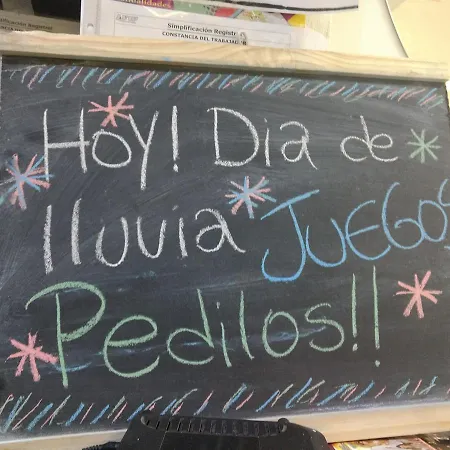 Simplificación Registr
CONSTANCIA DEL TRABAJAD
Hoy! Dia de
lluvia JUEGOS
Pedilos!!